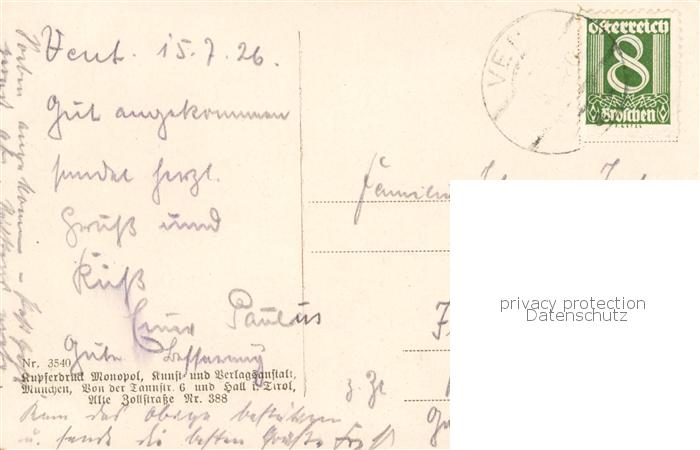 Vent. 15.7.26.
Gut angekommen
sendet herzl.
Gruß und
Kuß
Euer Paulus
Gute Besserung
Nr. 3540
Kupferdruck Monopol, Kunst- und Verlagsanstalt,
München, Von der Tannstr. 6 und Hall i. Tirol,
Alte Zollstraße Nr. 388
Kann das Obige bestätigen
u. sende die besten Grüße
Österreich
8
Groschen
VE
Familie
z. Zt
privacy protection
Datenschutz